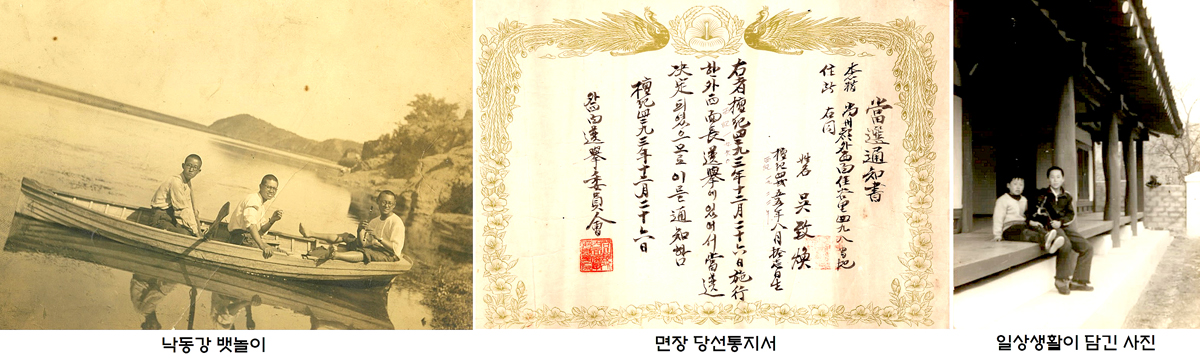 當選通知書
本籍 尙州郡外西面 里四九八番地
住所 右同
姓名 吳致煥
檀紀四二五五年八月 日生
右者檀紀四二九三年十二月二十六日施行
한外西面長選擧에있어서當選
決定되었으므로이를通知함
檀紀四二九三年十二月二十六日
外西面選擧委員會
낙동강 뱃놀이
면장 당선통지서
일상생활이 담긴 사진